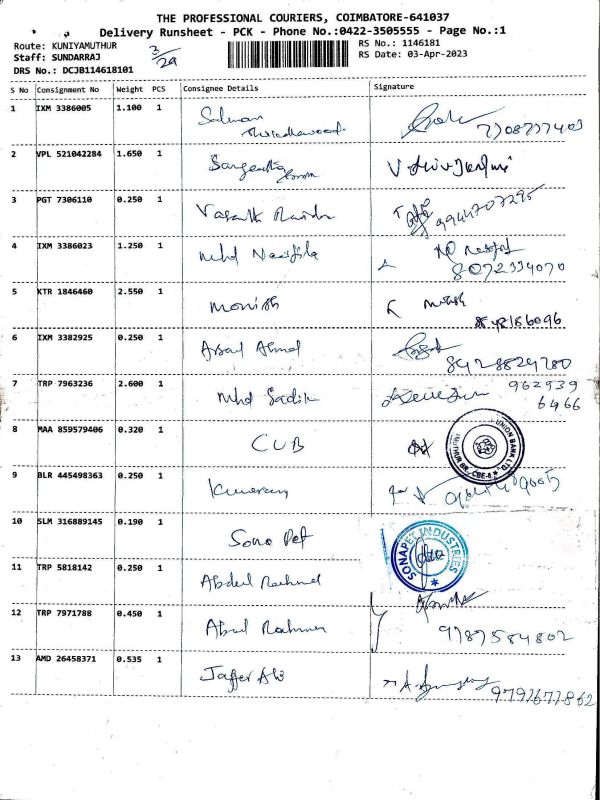 THE PROFESSIONAL COURIERS, COIMBATORE-641037
Delivery Runsheet - PCK - Phone No.:0422-3505555 - Page No.:1
Route: KUNIYAMUTHUR 3/29 RS No.: 1146181
Staff: SUNDARRAJ RS Date: 03-Apr-2023
DRS No.: DCJB114618101
S No Consignment No Weight PCS Consignee Details Signature
1 IXM 3386005 1.100 1 Salman
2 VPL 521042284 1.650 1 Sangeetha
3 PGT 7306110 0.250 1 Vasanth 9944707295
4 IXM 3386023 1.250 1 Mhd
8072334070
5 KTR 1846460 2.550 1 Monish
8548156096
6 IXM 3382925 0.250 1 Ahmed
7 TRP 7963236 2.600 1 Mhd Sadik 962939
6466
8 MAA 859579406 0.320 1 CUB UNION BANK LTD. CBE-8
9 BLR 445498363 0.250 1
10 SLM 316889145 0.190 1 Sona Pet SONAPET INDUSTRIES
11 TRP 5818142 0.250 1 Abdul Rahmed
12 TRP 7971788 0.450 1 9787584802
13 AMD 26458371 0.535 1 Jaffer Ali 9791677862